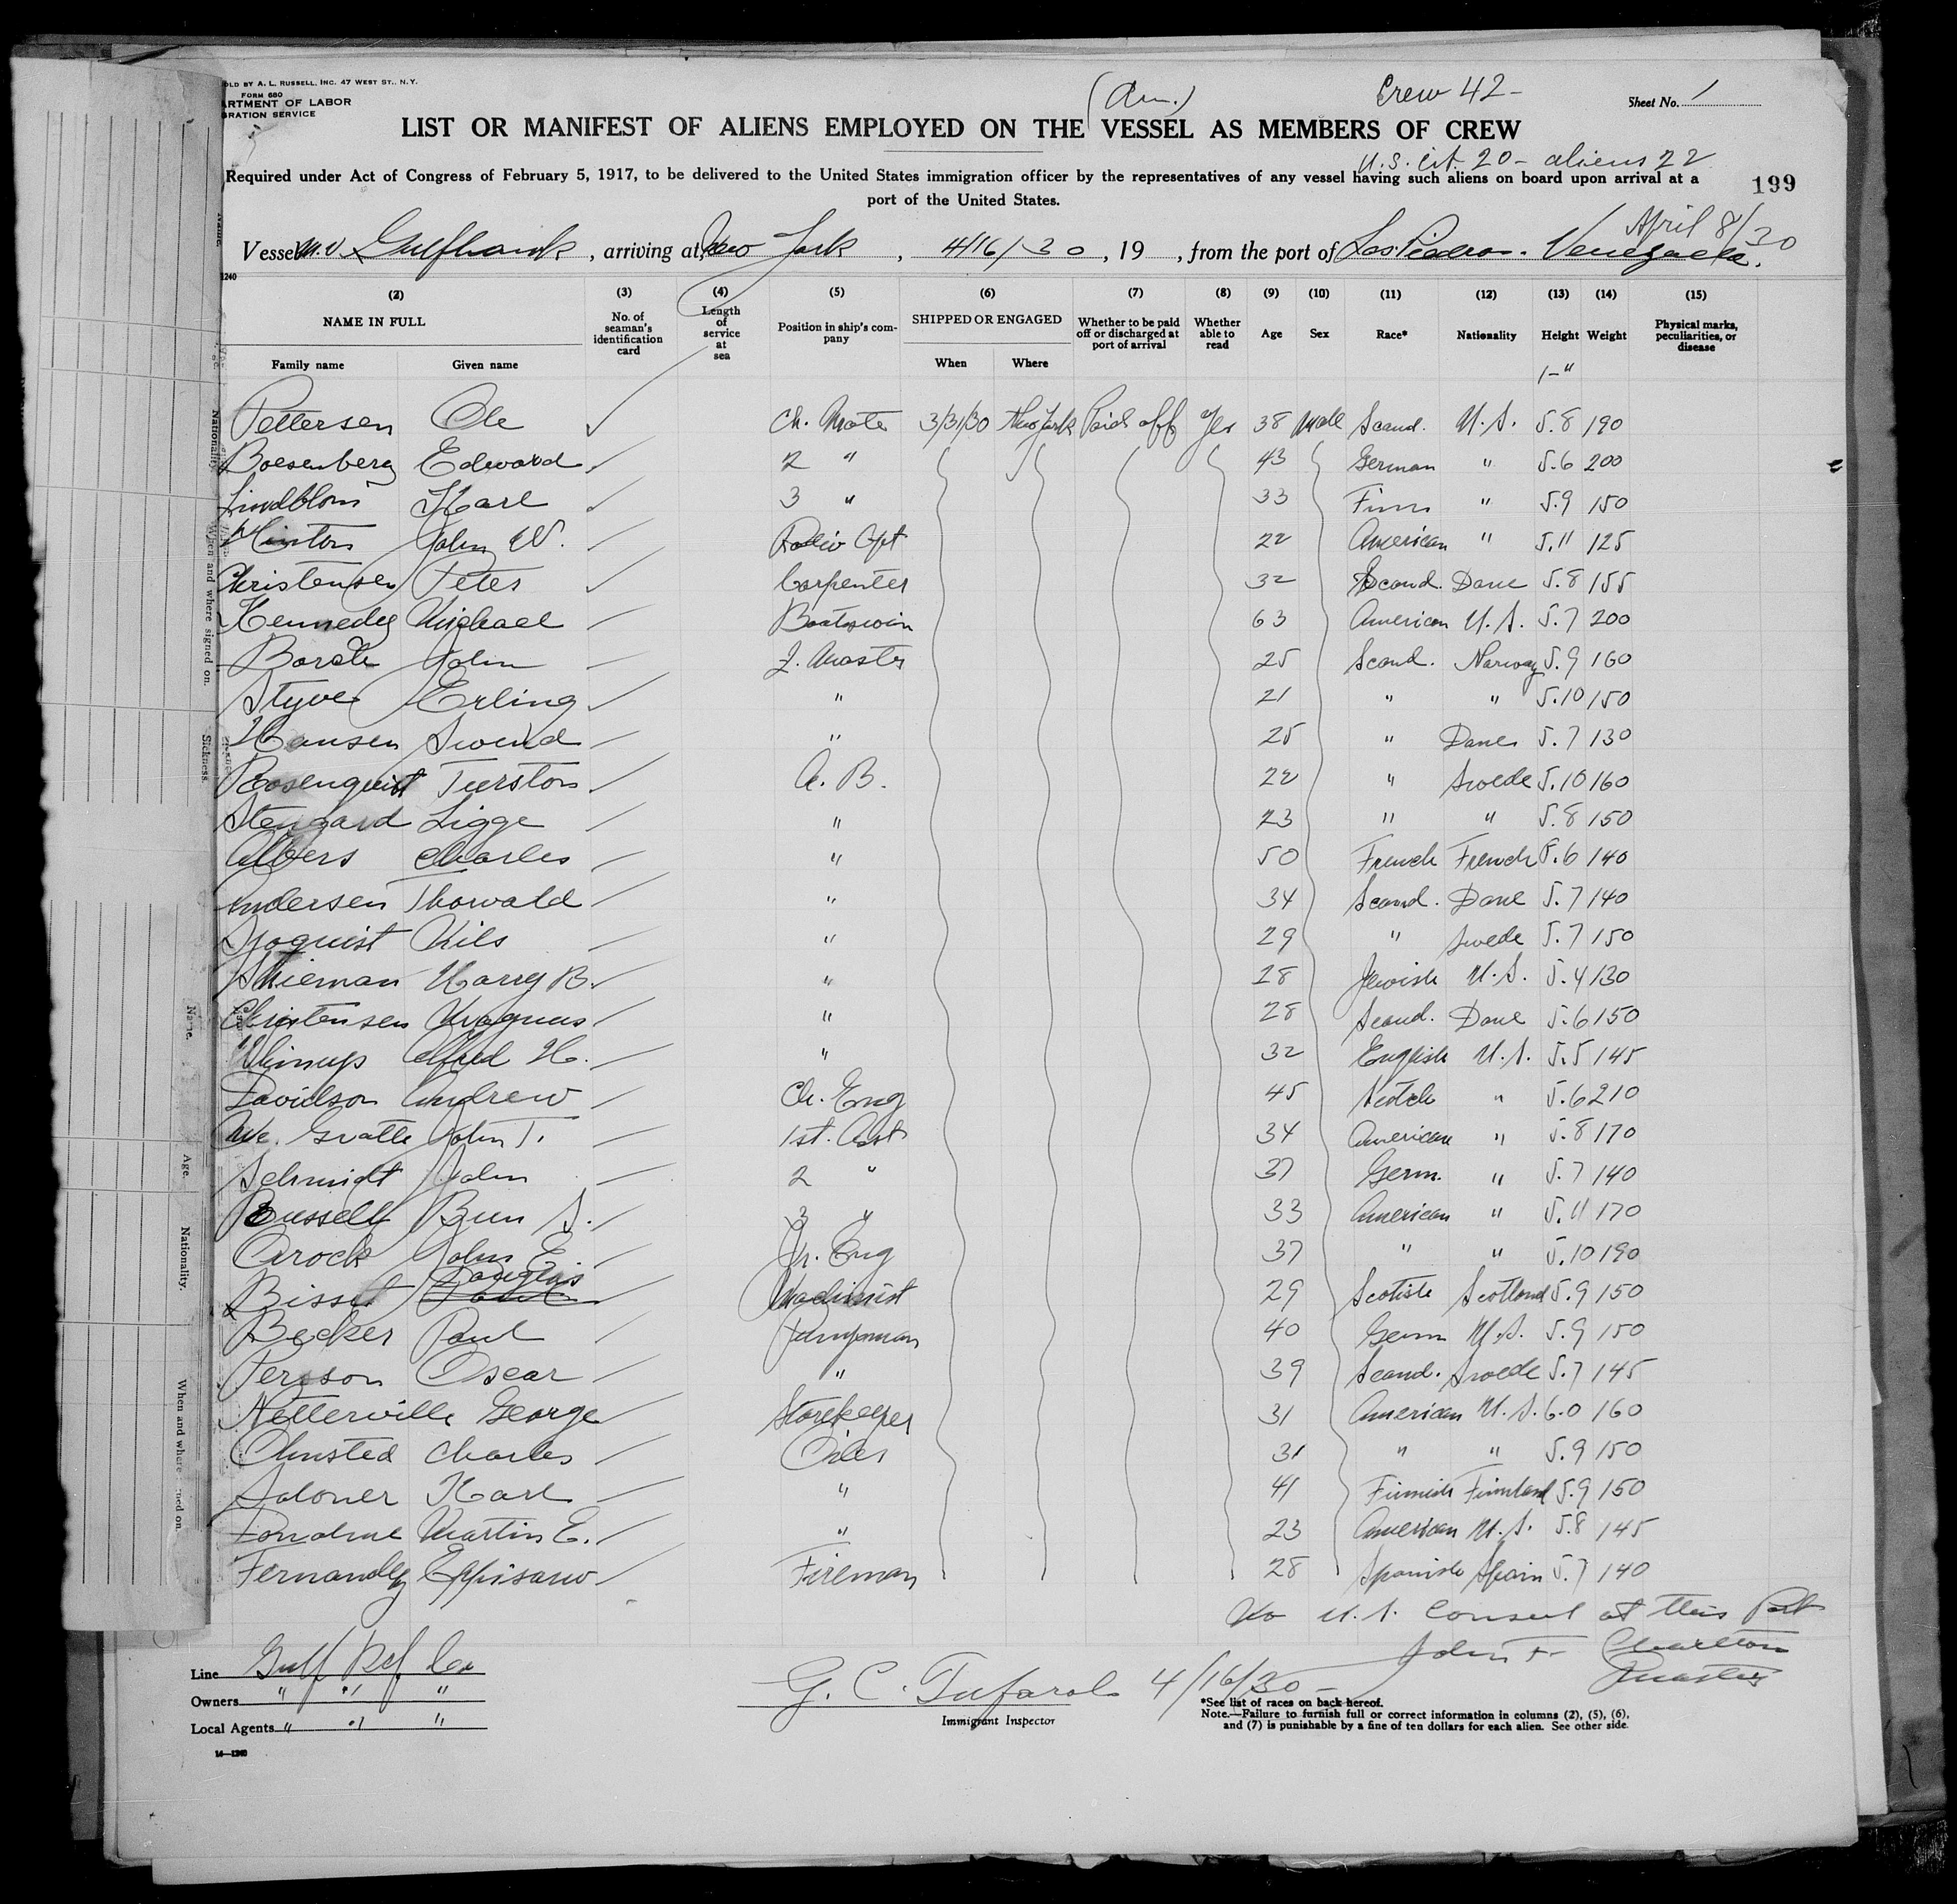 OLD BY A. L. RUSSELL, INC. 47 WEST ST., N.Y.
FORM 680
ARTMENT OF LABOR
GRATION SERVICE
(Am.)
Crew 42-
Sheet No. 1
LIST OR MANIFEST OF ALIENS EMPLOYED ON THE VESSEL AS MEMBERS OF CREW
U.S. cit. 20- aliens 22
Required under Act of Congress of February 5, 1917, to be delivered to the United States immigration officer by the representatives of any vessel having such aliens on board upon arrival at a
port of the United States.
199
April 8/30
Vessel M.V. Gulfhawk, arriving at New York, 4/16/30, 19 , from the port of Las Piedras. Venezuela.
1240
(2) (3) (4) (5) (6) (7) (8) (9) (10) (11) (12) (13) (14) (15)
NAME IN FULL No. of seaman's identification card Length of service at sea Position in ship's company SHIPPED OR ENGAGED Whether to be paid off or discharged at port of arrival Whether able to read Age Sex Race* Nationality Height Weight Physical marks, peculiarities, or disease
Family name Given name When Where
Pettersen Ole Ch. Mate 3/31/30 New York Paid off Yes 38 Male Scand. U.S. 5.8 190
Boesenberg Edward 2 " 43 German " 5.6 200
Lindblom Karl 3 " 33 Finn " 5.9 150
Hinton John W. Radio Opt 22 American " 5.11 125
Christensen Peter Carpenter 32 Scand. Dane 5.8 155
Kennedy Michael Boatswain 63 American U.S. 5.7 200
John 25 Scand. Norway 5.9 160
Styve Erling " 21 " " 5.10 150
Hansen Swend " 25 " Dane 5.7 130
Rosenquist Turston A.B. 22 " Swede 5.10 160
Stengard Sigge " 23 " " 5.8 150
Albers Charles " 50 French French 5.6 140
Andersen Thorwald " 34 Scand. Dane 5.7 140
Sjoquist Nils " 29 " Swede 5.7 150
Harry B. " 28 Jewish U.S. 5.4 130
Christensen Magnus " 28 Scand. Dane 5.6 150
Whinup Alfred H. " 32 English U.S. 5.5 145
Davidson Andrew Ch. Eng 45 Scotch " 5.6 210
John T. 1st. Asst 34 American " 5.8 170
Schmidt John 2 " 37 Germ. " 5.7 140
Russell Bun S. 3 " 33 American " 5.11 170
Crock John E. Jr. Eng 37 " " 5.10 190
Bisset Douglas Machinist 29 Scotish Scotland 5.9 150
Becker Paul Pumpman 40 Germ U.S. 5.9 150
Persson Oscar " 39 Scand. Swede 5.7 145
Netterville George Storekeeper 31 American U.S. 6.0 160
Olmsted Charles Oiler 31 " " 5.9 150
Saloner Karl " 41 Finnish Finnland 5.9 150
Martin E. " 23 American U.S. 5.8 145
Fernandez Fireman 28 Spanish Spain 5.7 140
No U.S. Consul at this Port
John F. Charlton
Master
Line Gulf Ref Co
Owners " " "
Local Agents " " "
14—1240
G. C. Tufarolo 4/16/30
Immigrant Inspector
*See list of races on back hereof.
Note.—Failure to furnish full or correct information in columns (2), (5), (6),
and (7) is punishable by a fine of ten dollars for each alien. See other side.
Nationality.
When and where signed on.
Sickness.
Name.
Age.
Nationality.
When and where
ned on.